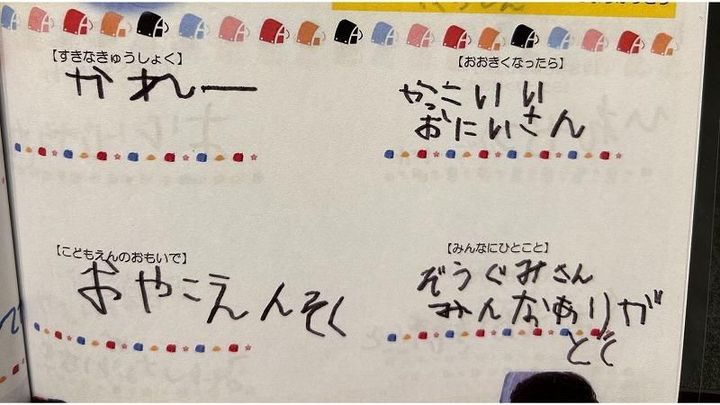 【すきなきゅうしょく】
かれー
【おおきくなったら】
かっこいい
おにいさん
【こどもえんのおもいで】
おやこえんそく
【みんなにひとこと】
ぞうぐみさん
みんなありが